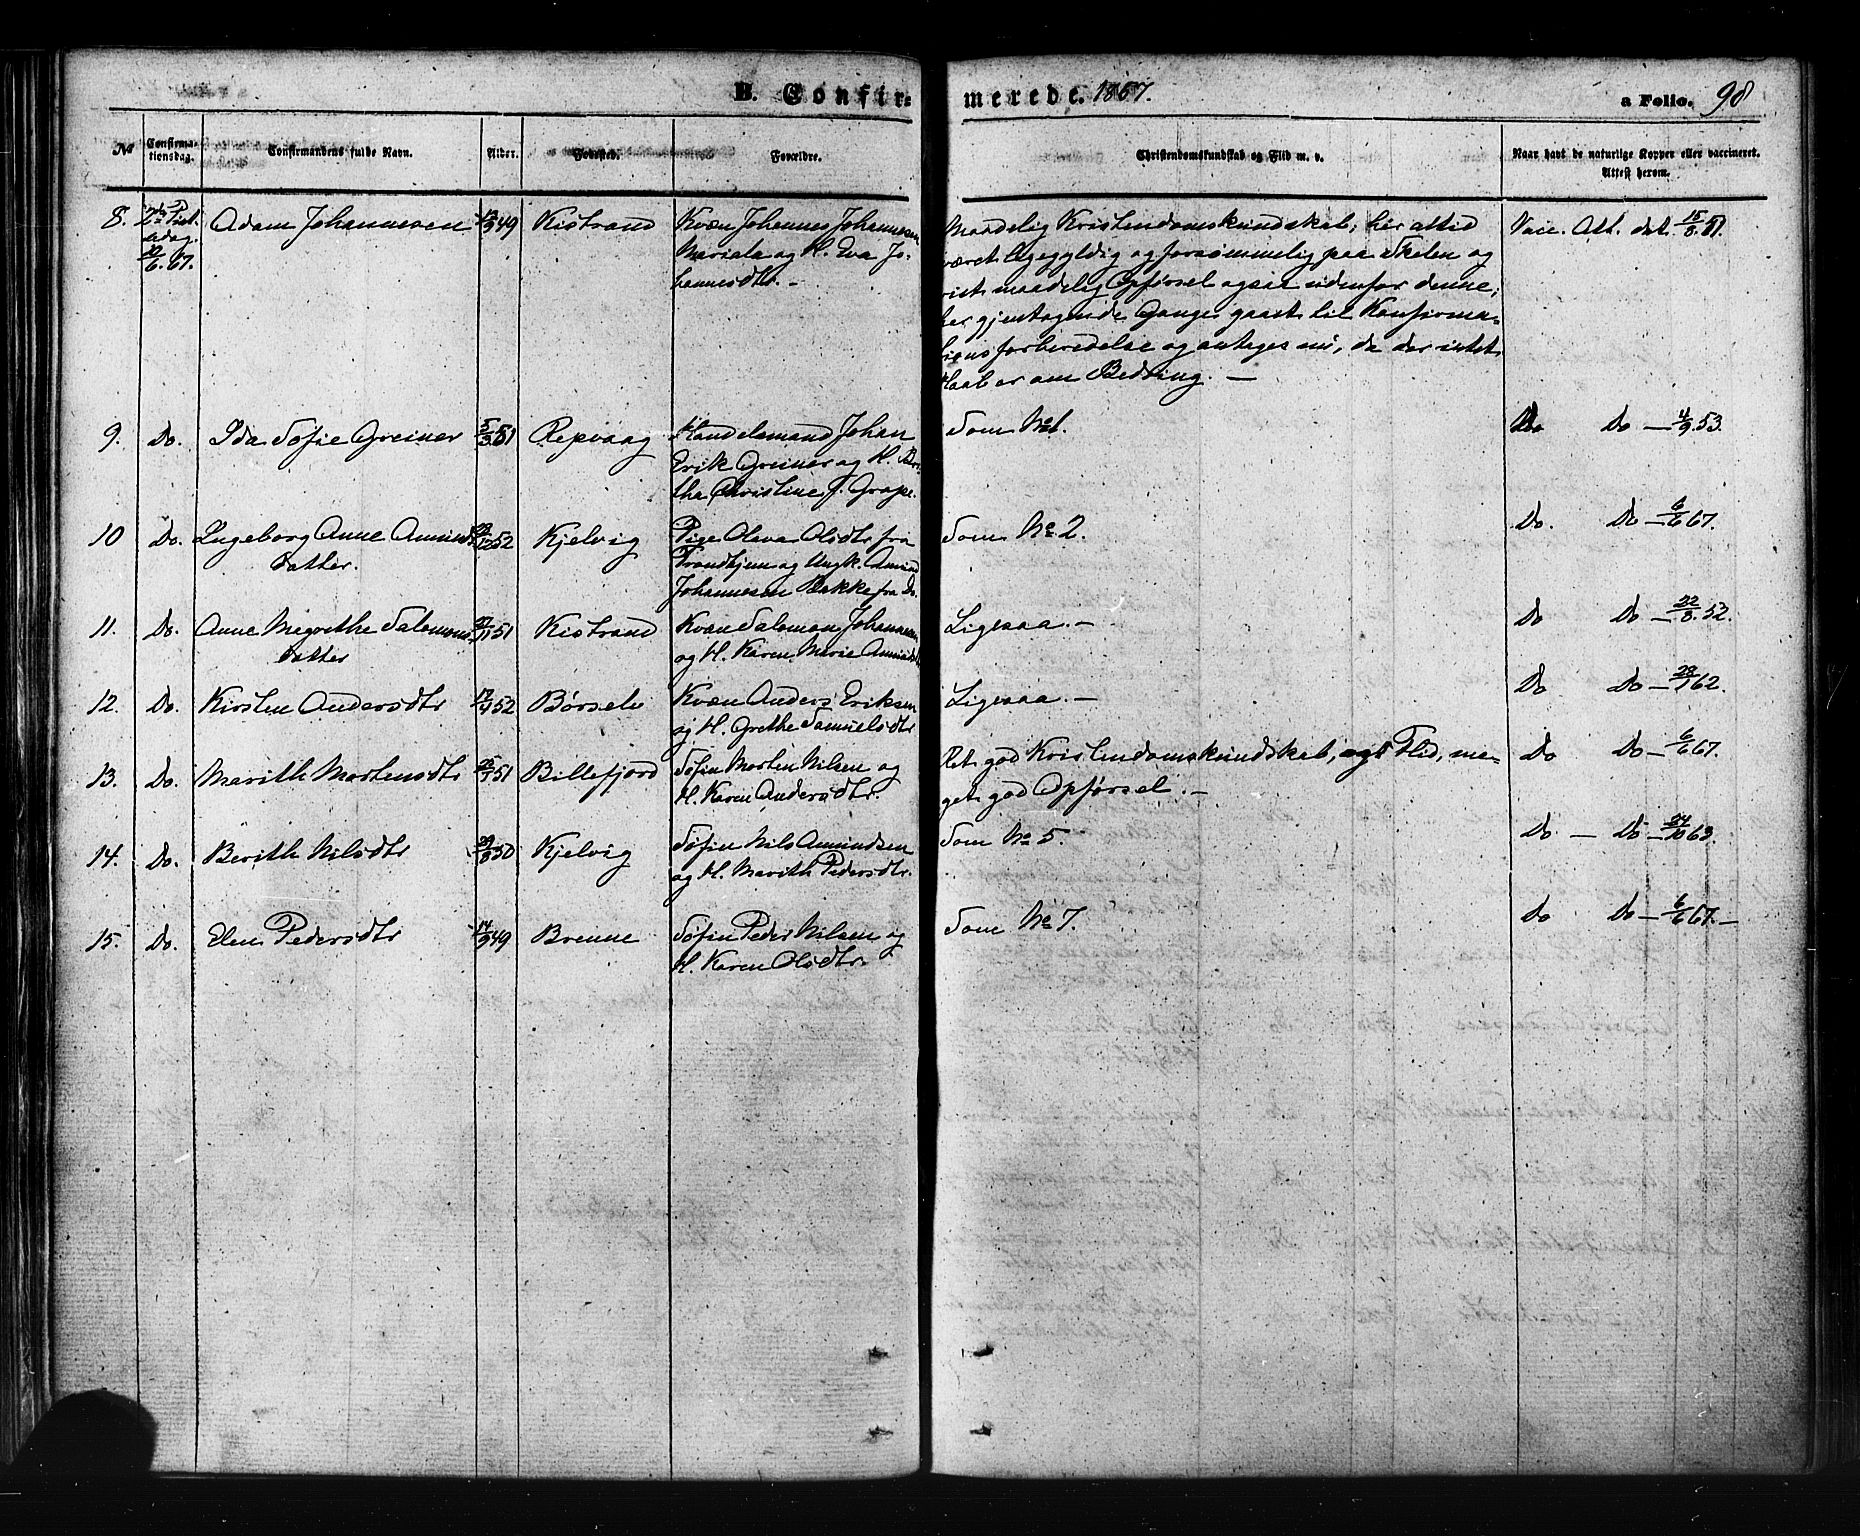 B. Confir-
merede. 1867.
a Folio. 98
No
Confirma-
tionsdag.
Confirmandens fulde Navn.
Alder.
Fødested.
Forældre.
Christendomskundskab og Flid m. v.
Naar havt de naturlige Kopper eller vaccineret.
Attest herom.
8. Adam Johannesen 49 Kistrand Kvæn Johannes Johannesen
6.67. Mariala og H. Eva Jo-
hannesdtr. -
Maadelig Kristendomskundskab, har altid
været ligegyldig og forsømmelig paa Skolen og
vist maadelig Opførsel ogsaa udenfor denne;
har gjentagende Gange gaaet til Konfirma-
tionsforberedelse og antages nu, da der intet
Haab er om Bedring. -
Vacc. Att. dat. 15/8.51.
9. Do. Ida Sofie Greiner 5/3 51 Repvaag Handelsmand Johan
Erik Greiner og H. Ber-
tha Christine f. Grape.
Som No 1. Do Do - 4/9.53.
10 Do. Ingeborg Anne Amunds 52 Kjelvig Pige Olava Olsdtr fra
datter. Trondhjem og Ungk. Amund
Johannesen Bakke fra Do.
Som No 2. Do. Do - 6/6 67.
11. Do. Anne Megrethe Salomons 51 Kistrand Kvæn Salomon Johannesen
datter og H. Karen Marie Amundsdtr
Ligesaa. - Do Do - 22/8.52.
12. Do. Kirsten Andersdtr 52 Børselv Kvæn Anders Eriksen
og H. Grethe Samuelsdtr
Ligesaa. - Do Do - 28/1 62.
13. Do. Marith Mortensdtr 51 Billefjord Søfin Morten Nilsen og
H. Karen Andersdtr.
Ret god Kristendomskundskab, og Flid, me-
get god Opførsel. -
Do Do - 6/6 67.
14. Do. Berith Nilsdtr 50 Kjelvig Søfin Nils Amundsen
og H. Marith Pedersdtr.
Som No 5. Do. - Do - 24/10 63.
15. Do. Elen Pedersdtr 14/9 49 Brenne Søfin Peder Nilsen og
H. Karen Olsdtr.
Som No 7. Do Do - 6/6 67. -